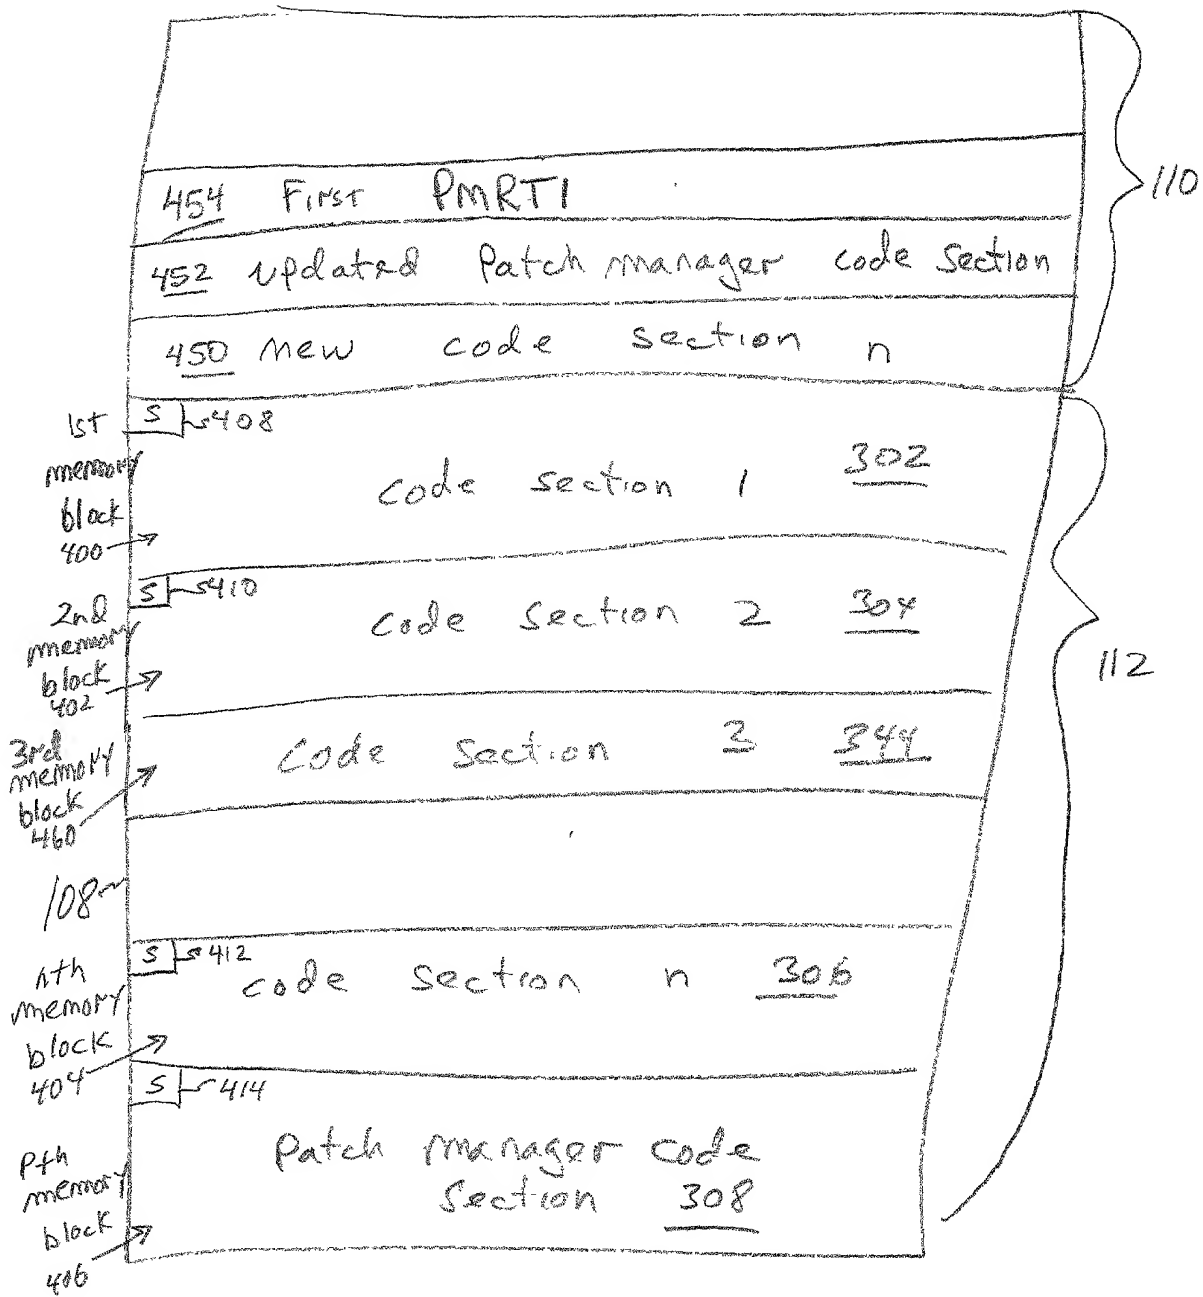 110
454 First PMRTI
452 updated Patch manager code section
450 new code section n
S 408
1st
memory
block
400
code section 1 302
S 410
2nd
memory
block
402
code section 2 304
112
3rd
memory
block
460
code section 3 344
108
S 412
nth
memory
block
404
code section n 306
S 414
Pth
memory
block
406
Patch manager code
section 308